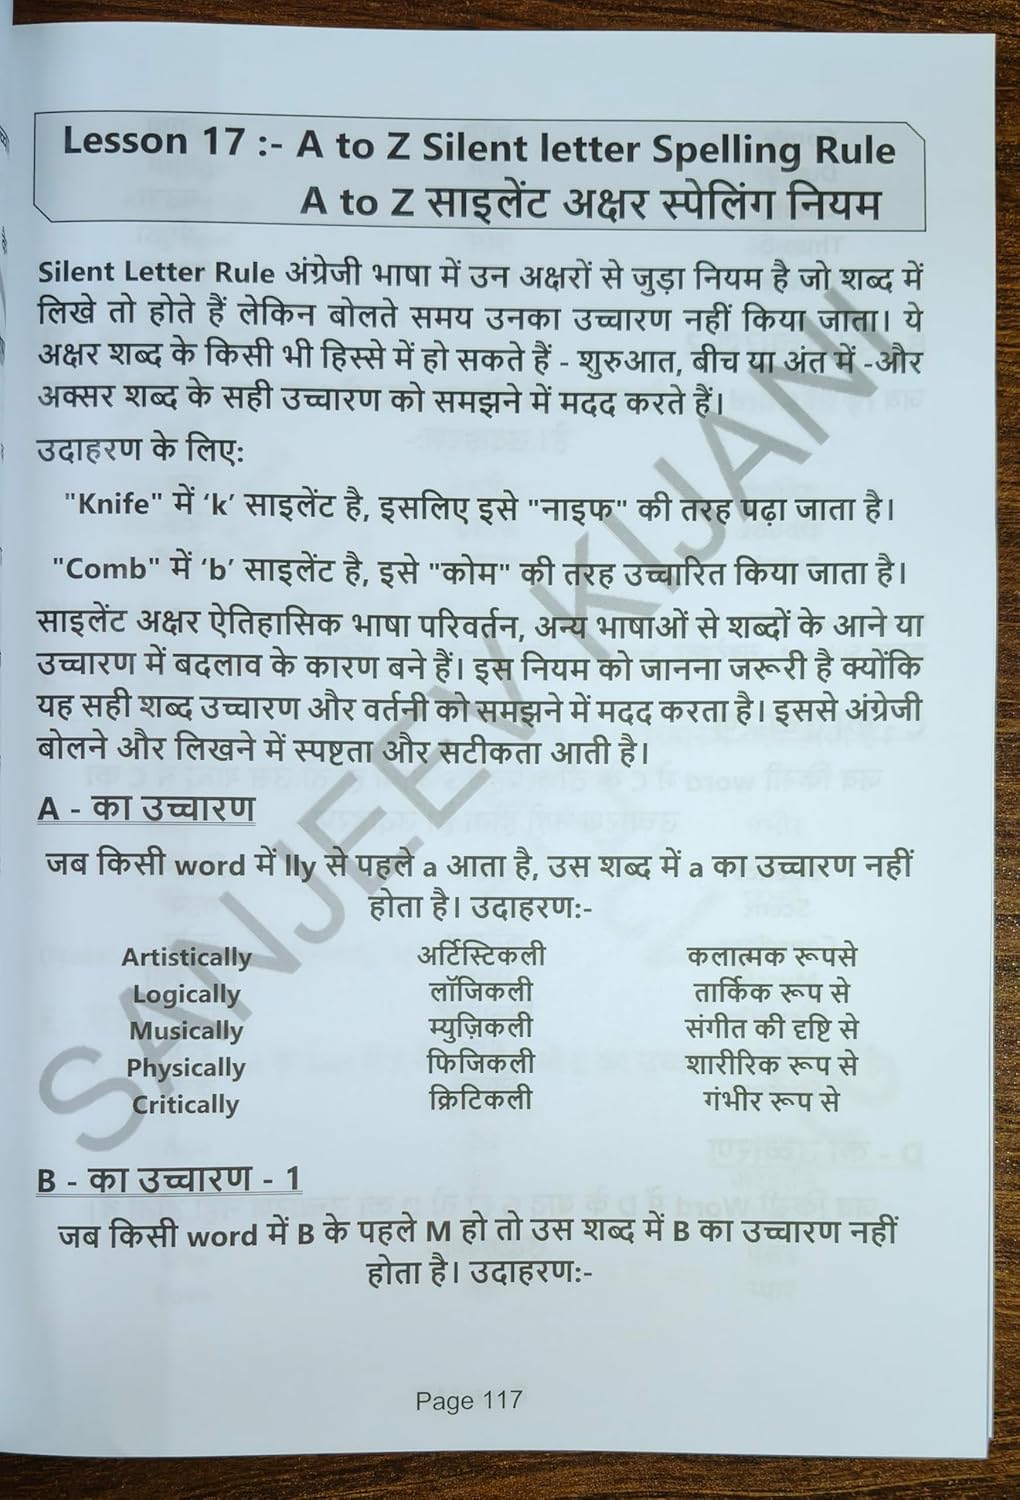 Lesson 17 :- A to Z Silent letter Spelling Rule
A to Z साइलेंट अक्षर स्पेलिंग नियम
Silent Letter Rule अंग्रेजी भाषा में उन अक्षरों से जुड़ा नियम है जो शब्द में
लिखे तो होते हैं लेकिन बोलते समय उनका उच्चारण नहीं किया जाता। ये
अक्षर शब्द के किसी भी हिस्से में हो सकते हैं - शुरुआत, बीच या अंत में -और
अक्सर शब्द के सही उच्चारण को समझने में मदद करते हैं।
उदाहरण के लिए:
"Knife" में ‘k’ साइलेंट है, इसलिए इसे "नाइफ" की तरह पढ़ा जाता है।
"Comb" में ‘b’ साइलेंट है, इसे "कोम" की तरह उच्चारित किया जाता है।
साइलेंट अक्षर ऐतिहासिक भाषा परिवर्तन, अन्य भाषाओं से शब्दों के आने या
उच्चारण में बदलाव के कारण बने हैं। इस नियम को जानना जरूरी है क्योंकि
यह सही शब्द उच्चारण और वर्तनी को समझने में मदद करता है। इससे अंग्रेजी
बोलने और लिखने में स्पष्टता और सटीकता आती है।
A - का उच्चारण
जब किसी word में lly से पहले a आता है, उस शब्द में a का उच्चारण नहीं
होता है। उदाहरण:-
Artistically अर्टिस्टिकली कलात्मक रूपसे
Logically लॉजिकली तार्किक रूप से
Musically म्युज़िकली संगीत की दृष्टि से
Physically फिजिकली शारीरिक रूप से
Critically क्रिटिकली गंभीर रूप से
B - का उच्चारण - 1
जब किसी word में B के पहले M हो तो उस शब्द में B का उच्चारण नहीं
होता है। उदाहरण:-
Page 117
SANJEEV KIJANI